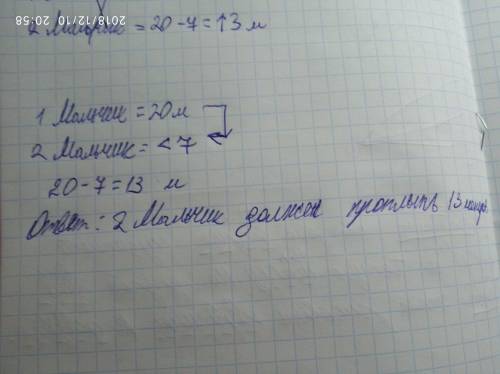 2018/12/10 20:58
2 Мальчик = 20-7=13 м
1 Мальчик = 20 м
2 Мальчик = <7
20-7=13 м
Ответ: 2 Мальчик должен проплыть 13 метров.